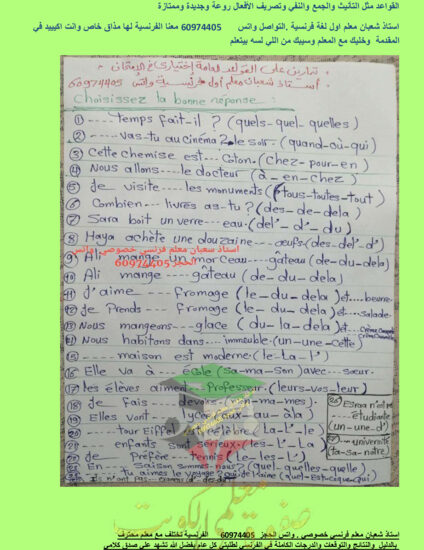 القواعد مثل التأنيث والجمع والنفي وتصريف الأفعال روعة وجديدة وممتازة
استاذ شعبان معلم اول لغة فرنسية .التواصل واتس 60974405 معنا الفرنسية لها مذاق خاص وانت اكيييد في
المقدمة وخليك مع المعلم وسيبك من اللي لسه بيتعلم
تمارين على القواعد العامة إختياري في الإمتحان
أستاذ شعبان معلم أول فرنسية واتس 60974405
Choisissez la bonne réponse:
① ---- temps fait-il ? (quels-quel-quelles)
② ---- vas-tu au cinéma? le soir. (quand-où-qui)
③ Cette chemise est... coton. (chez-pour-en)
④ Nous allons... le docteur (à-en-chez)
⑤ Je visite... les monuments (tous-toutes-tout)
⑥ Combien... livres as-tu? (des-de-dela)
⑦ Sara boit un verre... eau. (del'-d'-du)
⑧ Haya achète une douzaine... œufs (des-del'-d')
استاذ شعبان معلم فرنسي خصوصي واتس
الحجز 60974405
⑨ Ali mange un morceau... gâteau (de-du-dela)
⑩ Ali mange ---- gâteau (de-du-dela)
⑪ J'aime ... fromage (le-du-dela) et.... beurre
⑫ Je Prends ... fromage (le-du-dela) et... salade
⑬ Nous mangeons... glace (du-la-dela) et...
⑭ Nous habitons dans.... immeuble. (un-une-cette)
⑮ ------ maison est moderne (le-La-l')
⑯ Elle va à --- école (sa-ma-son) avec... sœur.
⑰ Les élèves aiment... Professeur. (leurs-vos-leur)
⑱ Je fais... devoirs (mon-ma-mes).
⑲ Elles vont... lycée (aux-au-àla)
... tour Eiffel ... célèbre (La-l'-le)
... enfants sont sérieux. (les-L'-La)
Je Préfère... tennis (le-les-l')
En... saison sommes-nous? (quel-quelles-quelle)
... tu aimes le voyage?
Ils n'ont pas
26 Esraa n'est
étudiante
(un-une-d')
27 ... université
(ta-sa-notre)
صفوة معلمي الكويت
استاذ شعبان معلم فرنسي خصوصي . واتس الحجز 60974405 الفرنسية تختلف مع معلم محترف
بالدليل والنتائج والتوقعات والدرجات الكاملة في الفرنسية لطلبتي كل عام/بفضل الله تشهد على صدق كلامي